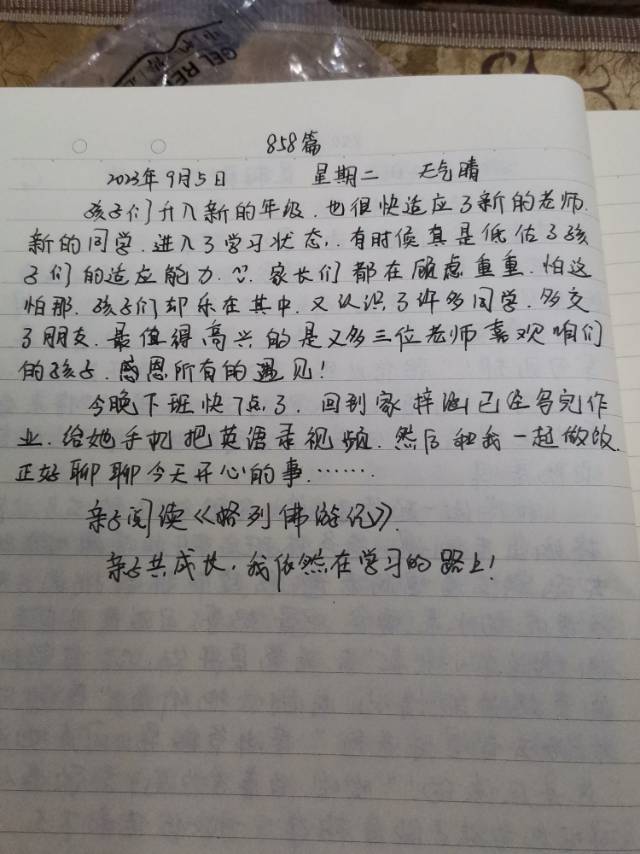 GEL RE
858篇
2023年9月5日 星期二 天气晴
孩子们升入新的年级.也很快适应了新的老师.
新的同学.进入了学习状态,.有时候真是低估了孩
子们的适应能力.家长们都在顾虑重重.怕这
怕那.孩子们却乐在其中.又认识了许多同学.多交
了朋友.最值得高兴的是又多三位老师喜欢咱们
的孩子.感恩所有的遇见!
今晚下班快7点了.回到家梓涵已经写完作
业.给她手机把英语录视频.然后和我一起做饭.
正好聊聊今天开心的事.……
亲子阅读《格列佛游记》.
亲子共成长.我依然在学习的路上!